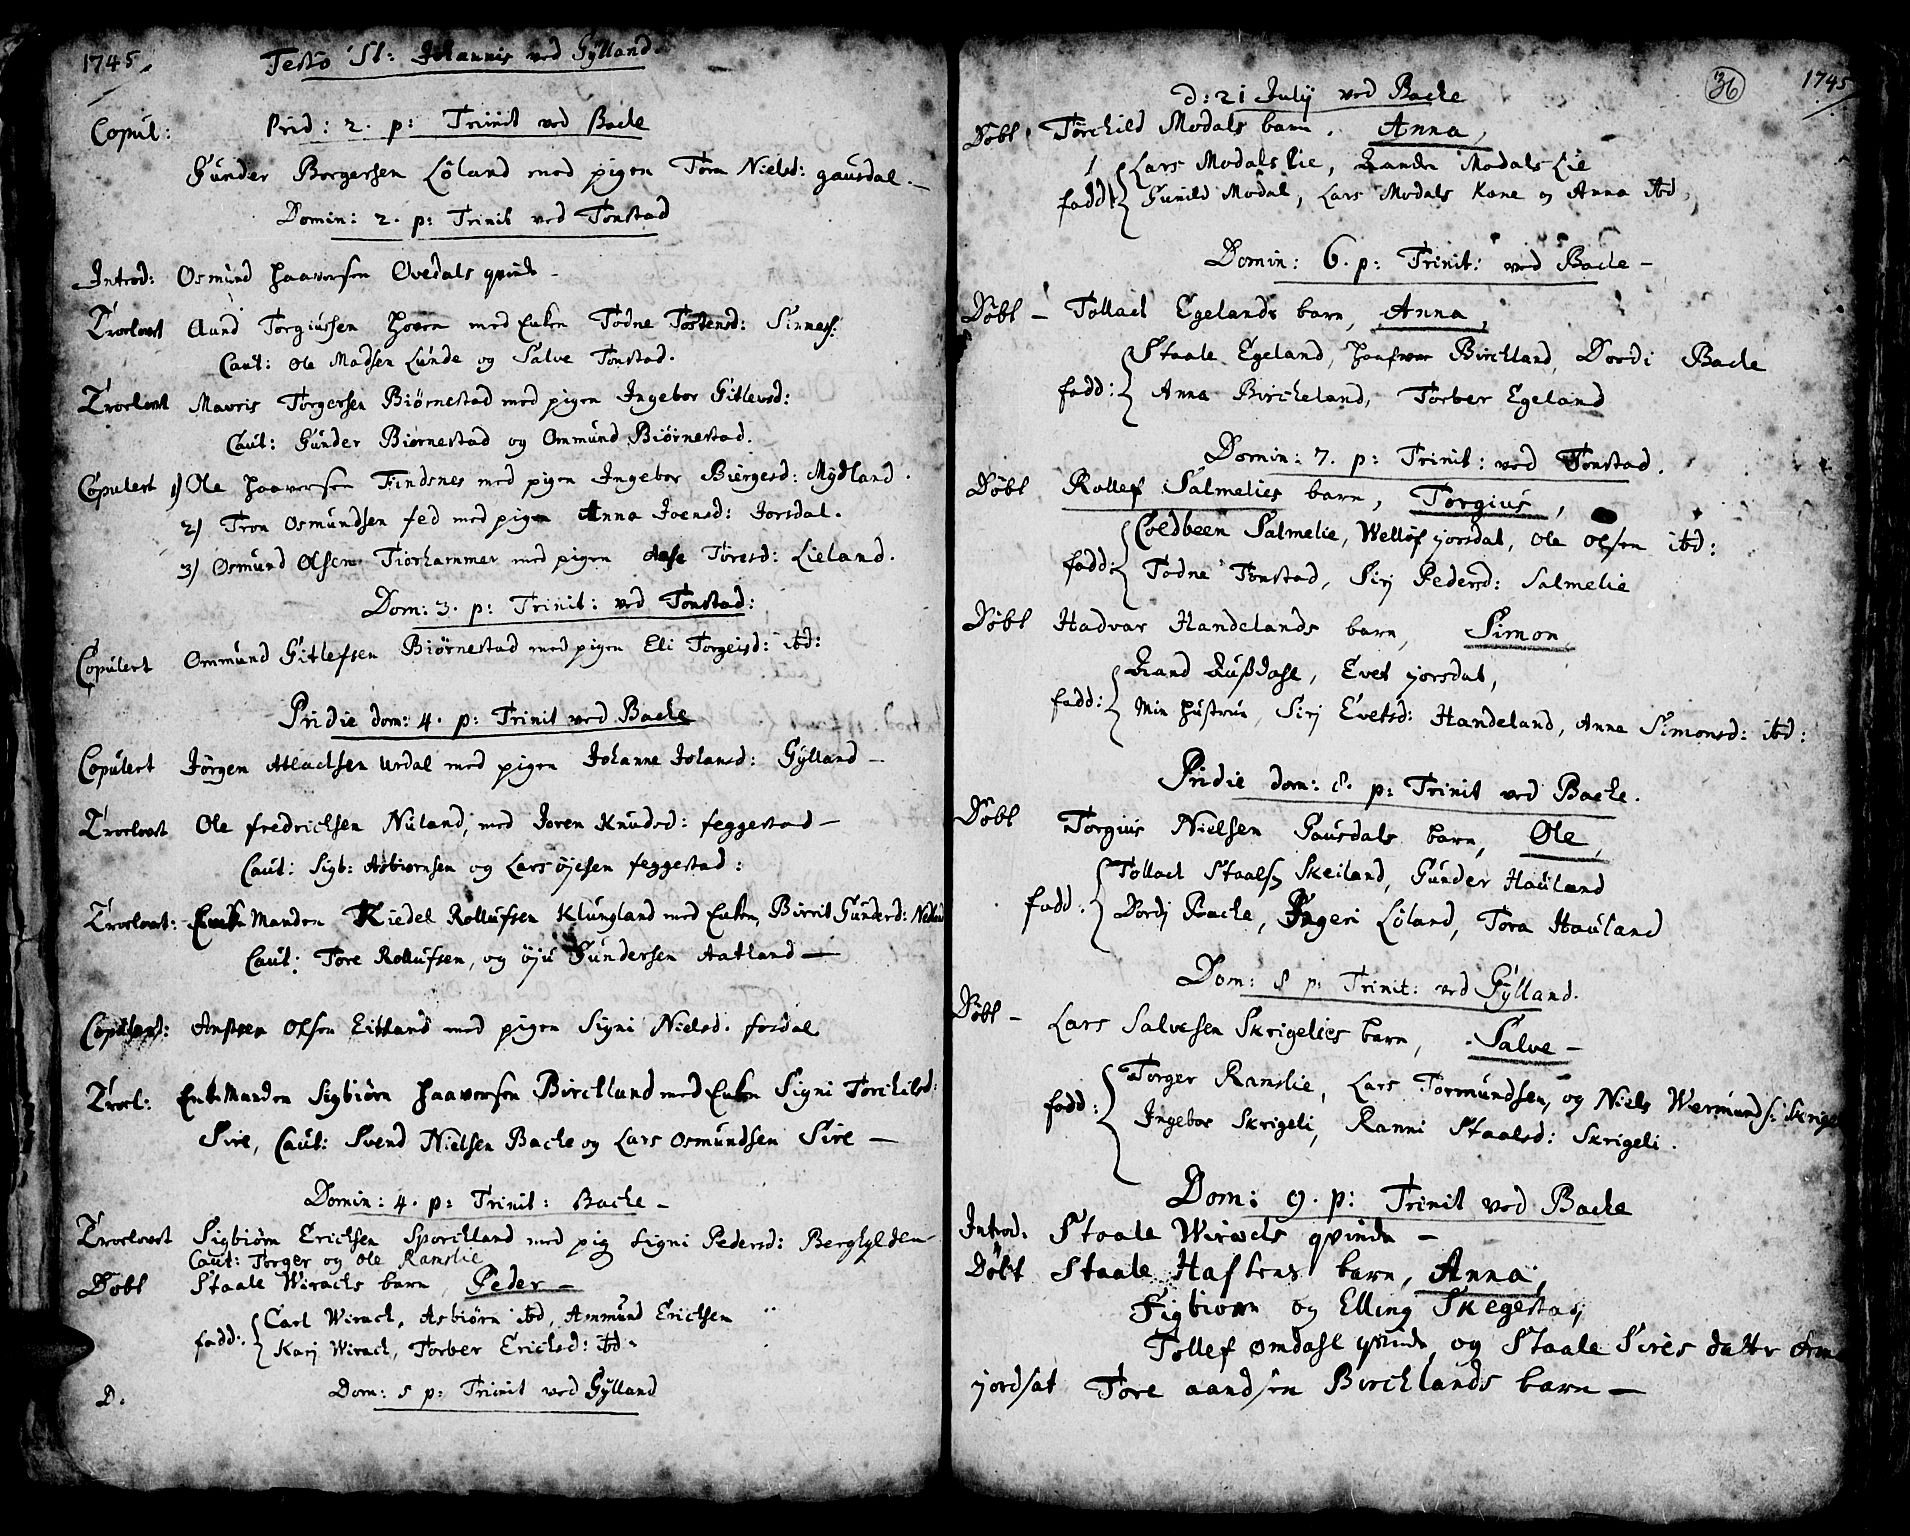 1745.
Festo St: Johannis ved Gylland.
Copul: Prid: 2. p: Trinit ved Bache
Gunder Borgersen Löland med pigen Tora Nielsd: gausdal.
Domin: 2. p: Trinit ved Tonstad
Introd: Osmund Haaversen Ovedals qvinde
Troelovet Aand Torgiussen Hoven med Enken Todne Tostensd: Sinnes:
Caut: Ole Madsen Lunde og Salve Tonstad.
Troelovet Mavris Torgersen Biørnestad med pigen Ingebor Gitlevsd:
Caut: Gunder Biørnestad og Ommund Biørnestad.
Copulert 1) Ole Haaversen Findsnes med pigen Ingebor Biergesd: Mydland.
2) Tron Osmundsen fed med pigen Anna Joensd: Jorsdal.
3) Osmund Olsen Tiorhammer med pigen Aase Toresd: Lieland.
Dom: 3. p: Trinit: ved Tonstad:
Copulert Ommund Gitlefsen Biørnestad med pigen Eli Torgeisd: ibd:
Pridie dom: 4. p: Trinit ved Bache
Copulert Jörgen Atlachsen Urdal med pigen Johanne Johansd: Gylland
Troelovet Ole fredrichsen Nuland, med Joren Knudsd: feggestad
Caut: Sigb: Asbiørnsen og Lars øjesen feggestad:
Troelovet: Enke Manden Kiedel Rollufsen Klungland med Enken, Birrit Gunderd:
Caut: Tore Rollufsen, og öju Gundersen Aatland
Copulert: Ansten Olsen Eitland med pigen Signi Nielsd. fosdal
Troel: Enke Manden Sigbiørn Haaversen Birchland med Enken Signi Torchilsd:
Sire, Caut: Svend Nielsen Bache og Lars Osmundsen Sire
Domin: 4. p: Trinit: Bache
Troelovet Sigbiørn Erichsen Sporchland med pig Signi Pedersd: Berghylden
Caut: Torger og Ole Ramslie
Döbt Staale Wirachs barn, Peder
fadd: Carl Wirach, Asbiørn ibd, Ammund Erichsen
Karj Wirach, Torber Erichsd: ibd.
D. Dom: 5 p: Trinit ved Gylland
36
1745
d: 21 Julij ved Bache
Döbt Torchild Modals barn, Anna,
fadd: Lars Modals Lie, Rande Modals Lie
Gunild Modal, Lars Modals Kone og Anna ibd,
Domin: 6. p: Trinit: ved Bache
Döbt Tollach Egelands barn, Anna,
fadd: Staale Egeland, Haafvor Birchland, Dordi Bache
Anna Bircheland, Torber Egeland
Domin: 7. p: Trinit: ved Tonstad.
Döbt Rollef Salmelies barn, Torgius,
fadd: Coldbeen Salmelie, Wellof jorsdal, Ole Olsen ibd:
Todne Tonstad, Sirj Pedersd: Salmelie
Döbt Hadvar Handelands barn, Simon,
fadd: Rand Rußdahl, Evet jorsdal,
Min Hustrue, Sirj Evetsd: Handeland, Anna Simonsd: ibd:
Pridie dom: 8. p: Trinit ved Bache.
Döbt Torgius Nielsen Gausdals barn, Ole,
fadd: Tollach Staals Skeiland, Gunder Hauland
Dordj Bache, Ingeri Löland, Tora Hauland
Dom: 8 p: Trinit: ved Gylland.
Döbt Lars Salvesen Skrigelies barn, Salve
fadd: Torger Ramslie, Lars Tormundsen, og Niels Wermunds: Skrige
Ingebor Skrigeli, Ranni Staalsd: Skrigeli.
Dom: 9. p: Trinit ved Bache
Introd. Staale Wirachs qvinde
Döbt Staale Haftens barn, Anna,
Sigbiorn og Elling Skegestad,
Tollef Omdahl qvinde, og Staale Sires datter
jordsat Tore aandsen Birchlands barn